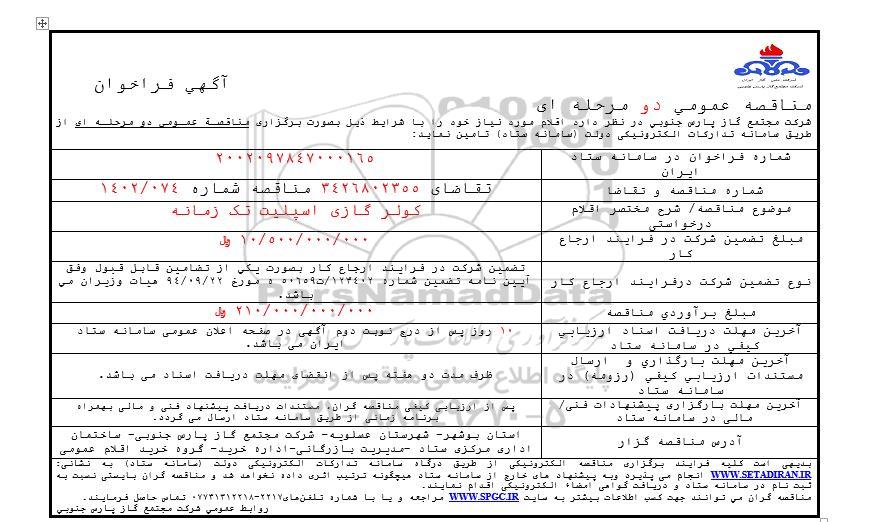 آگهي فراخوان
شرکت ملی گاز ایران
شرکت مجتمع گاز پارس جنوبی
مناقصه عمومي دو مرحله ای
شرکت مجتمع گاز پارس جنوبي در نظر دارد اقلام مورد نیاز خود را با شرایط ذیل بصورت برگزاری مناقصة عمومی دو مرحله ای از
طریق سامانه تدارکات الکترونیکی دولت (سامانه ستاد) تامین نماید:
شماره فراخوان در سامانه ستاد
ایران
۲۰۰۲۰۹۷۸۴۷۰۰۰۱۶۵
شماره مناقصه و تقاضا
تقاضای ۳۴۲۶۸۰۲۳۵۵ مناقصه شماره ۱۴۰۲/۰۷۴
موضوع مناقصه/ شرح مختصر اقلام
درخواستی
کولر گازی اسپلیت تک زمانه
مبلغ تضمین شرکت در فرایند ارجاع
کار
۱۰/۵۰۰/۰۰۰/۰۰۰ ﷼
نوع تضمین شرکت درفرایند ارجاع کار
تضمین شرکت در فرایند ارجاع کار بصورت یکي از تضامین قابل قبول وفق
آیین نامه تضمین شماره ۱۲۳۴۰۲/ت۵۰۶۵۹ ه مورخ ۹۴/۰۹/۲۲ هیات وزیران می
باشد.
مبلغ برآوردي مناقصه
۲۱۰/۰۰۰/۰۰۰/۰۰۰ ﷼
آخرین مهلت دریافت اسناد ارزیابي
کیفي در سامانه ستاد
۱۰ روز پس از درج نوبت دوم آگهی در صفحه اعلان عمومی سامانه ستاد
ایران می باشد.
آخرین مهلت بارگذاري و ارسال
مستندات ارزیابي کیفي (رزومه) در
سامانه ستاد
ظرف مدت دو هفته پس از انقضای مهلت دریافت اسناد می باشد.
آخرین مهلت بارگزاری پیشنهادات فنی/
مالی در سامانه ستاد
پس از ارزیابی کیفی مناقصه گران، مستندات دریافت پیشنهاد فنی و مالی بهمراه
برنامه زمانی از طریق سامانه ستاد ارسال می گردد.
آدرس مناقصه گزار
استان بوشهر- شهرستان عسلویه- شرکت مجتمع گاز پارس جنوبی- ساختمان
اداری مرکزی ستاد -مدیریت بازرگانی-اداره خرید- گروه خرید اقلام عمومی
بدیهی است کلیه فرایند برگزاری مناقصه الکترونیکی از طریق درگاه سامانه تدارکات الکترونیکی دولت (سامانه ستاد) به نشانی:
WWW.SETADIRAN.IR انجام می پذیرد وبه پیشنهاد های خارج از سامانه ستاد هیچگونه ترتیب اثری داده نخواهد شد و مناقصه گران بایستی نسبت به
ثبت نام در سامانه ستاد و دریافت گواهی امضاء الکترونیکی اقدام نمایند.
مناقصه گران می توانند جهت کسب اطلاعات بیشتر به سایت WWW.SPGC.IR مراجعه و یا با شماره تلفن‌های۲۲۱۷-۰۷۷۳۱۳۱۲۲۱۸ تماس حاصل فرمایند.
روابط عمومی شرکت مجتمع گاز پارس جنوبی
ParsNamadData